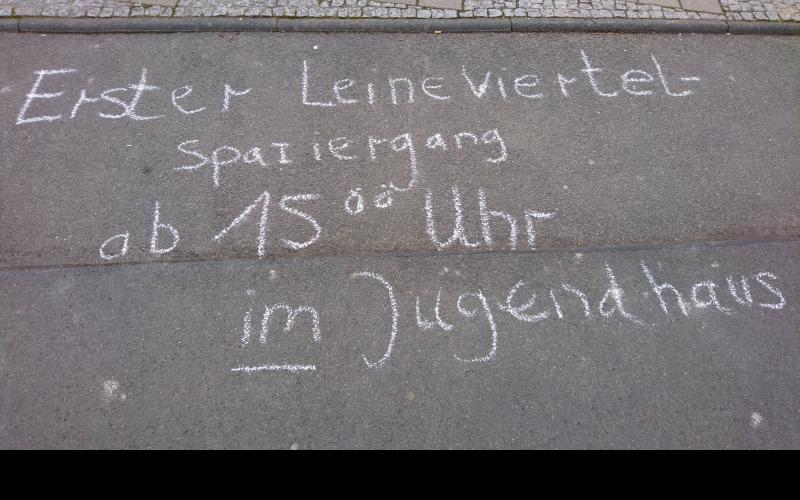 Erster Leineviertel-
Spaziergang
ab 15⁰⁰ Uhr
im Jugendhaus